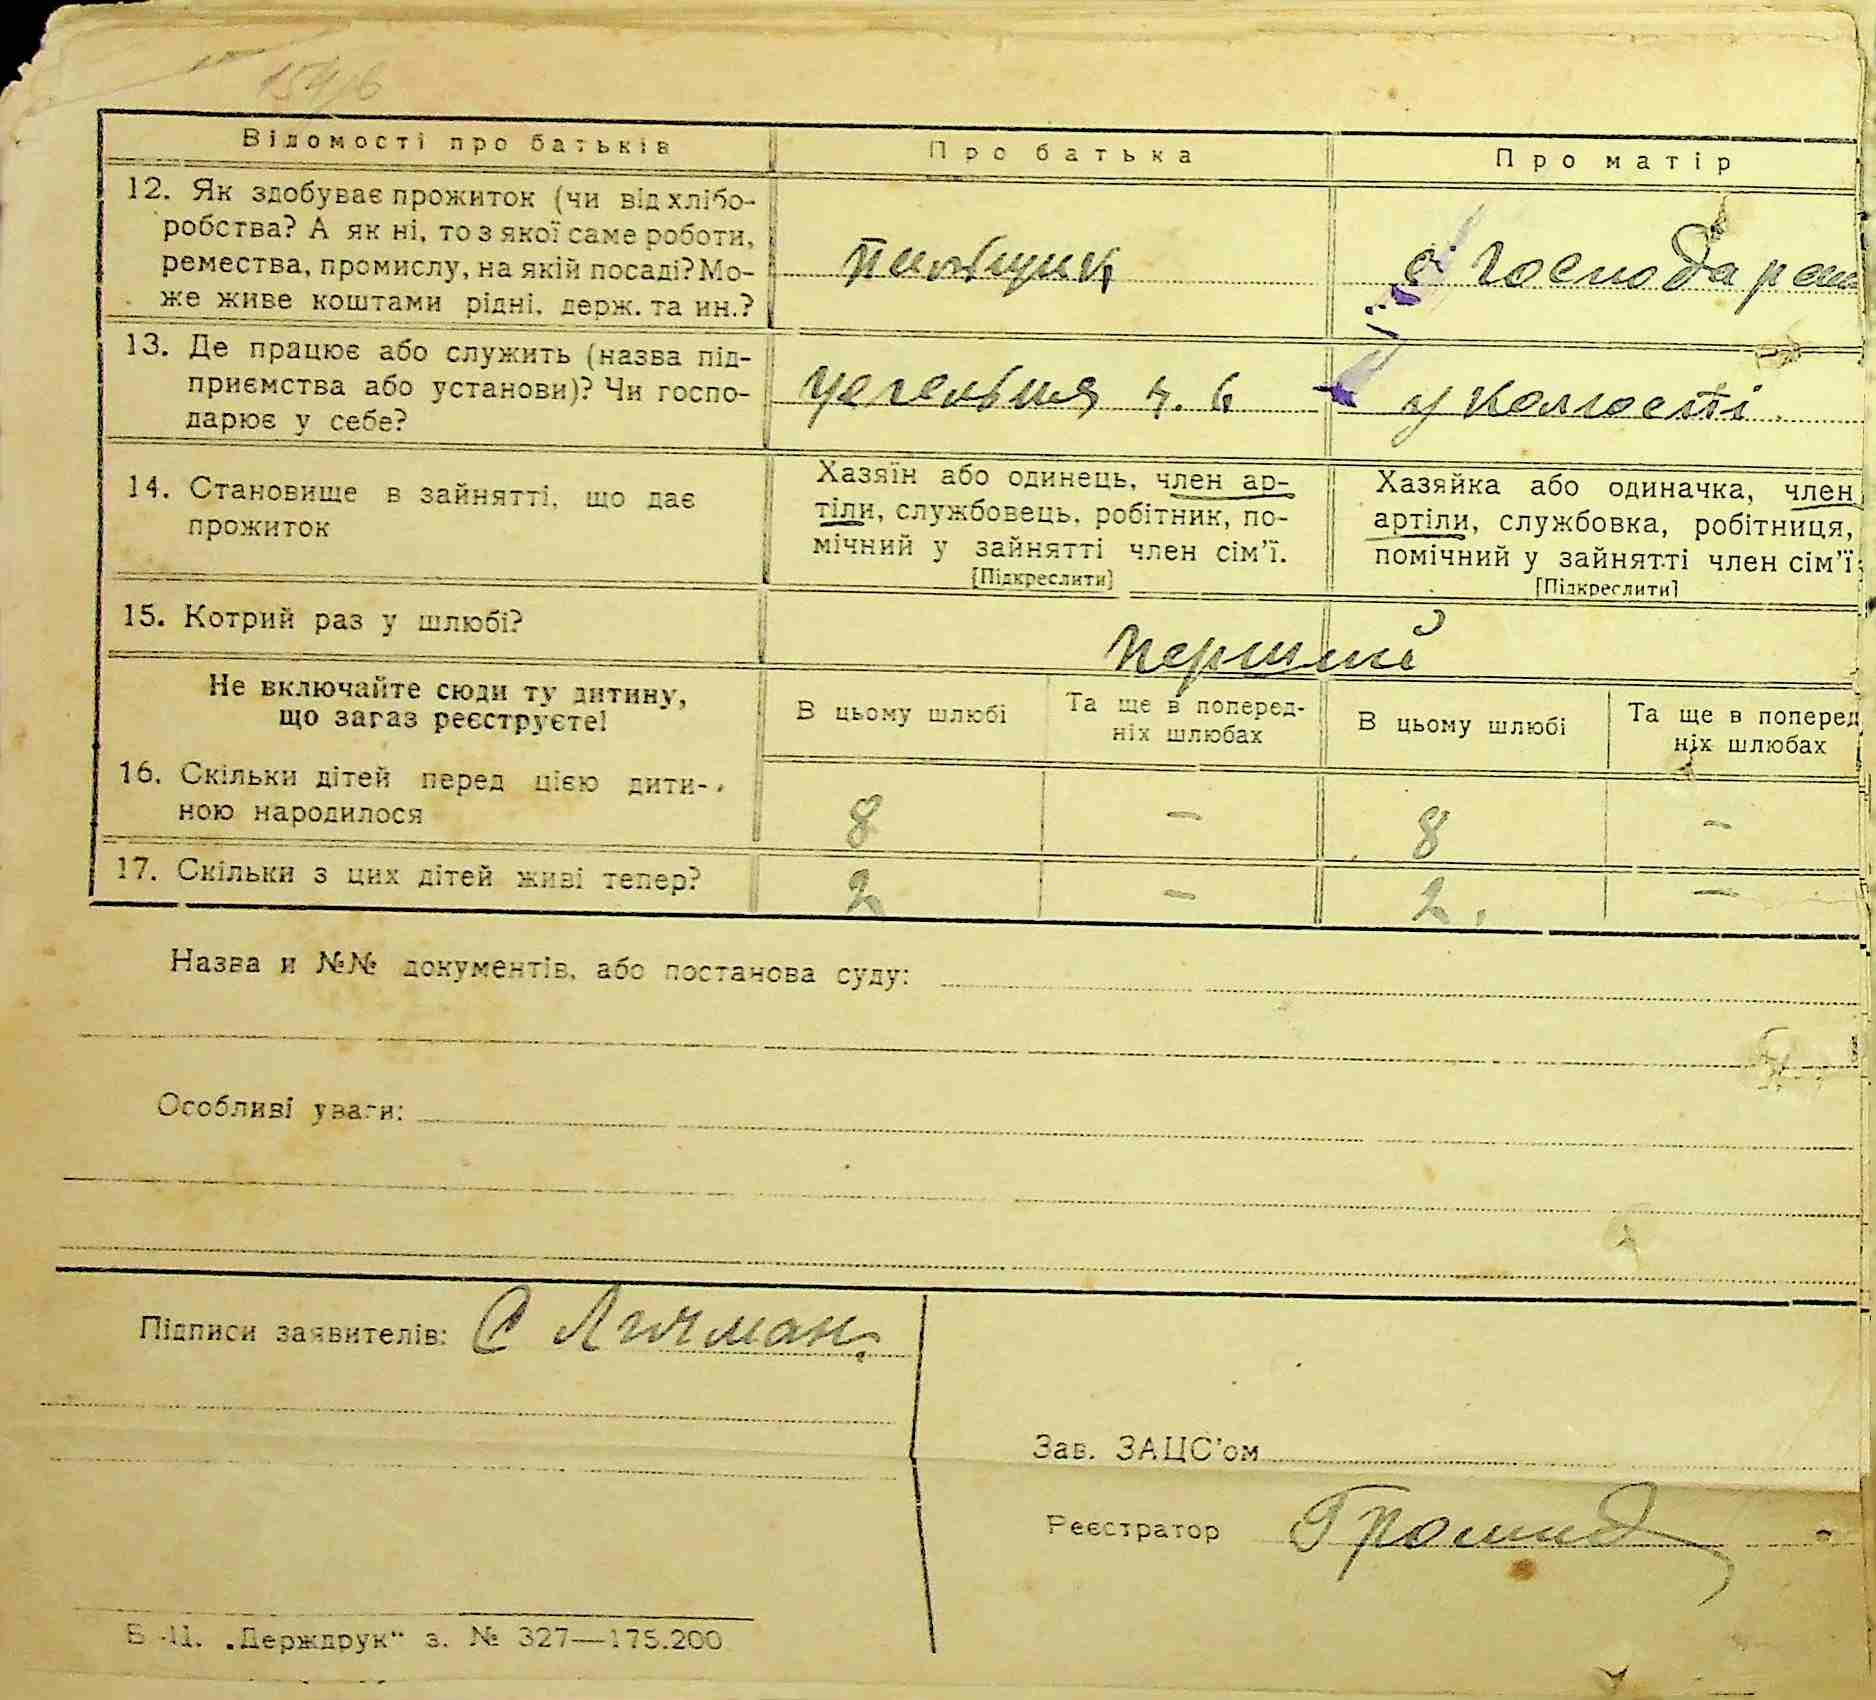 154/6
Відомості про батьків
Про батька
Про матір
12. Як здобуває прожиток (чи від хлібо-
робства? А як ні, то з якої саме роботи,
ремества, промислу, на якій посаді? Мо-
же живе коштами рідні, держ. та ин.?
пильщик
с господарст
13. Де працює або служить (назва під-
приємства або установи)? Чи госпо-
дарює у себе?
цегельня ч. 6
у колгоспі
14. Становище в зайнятті, що дає
прожиток
Хазяїн або одинець, член ар-
тіли, службовець, робітник, по-
мічний у зайнятті член сім'ї.
[Підкреслити]
Хазяйка або одиначка, член
артіли, службовка, робітниця,
помічний у зайнятті член сім'ї.
[Підкреслити]
15. Котрий раз у шлюбі?
Перший
Не включайте сюди ту дитину,
що зараз реєструєте!
В цьому шлюбі
Та ще в поперед-
ніх шлюбах
В цьому шлюбі
Та ще в поперед
ніх шлюбах
16. Скільки дітей перед цією дити-
ною народилося
8 – 8 –
17. Скільки з цих дітей живі тепер?
2 – 2. –
Назва и №№ документів, або постанова суду:
Особливі уваги:
Підписи заявителів: С
Зав. ЗАЦС'ом
Реєстратор
Б-11. „Держдрук“ з. № 327—175.200